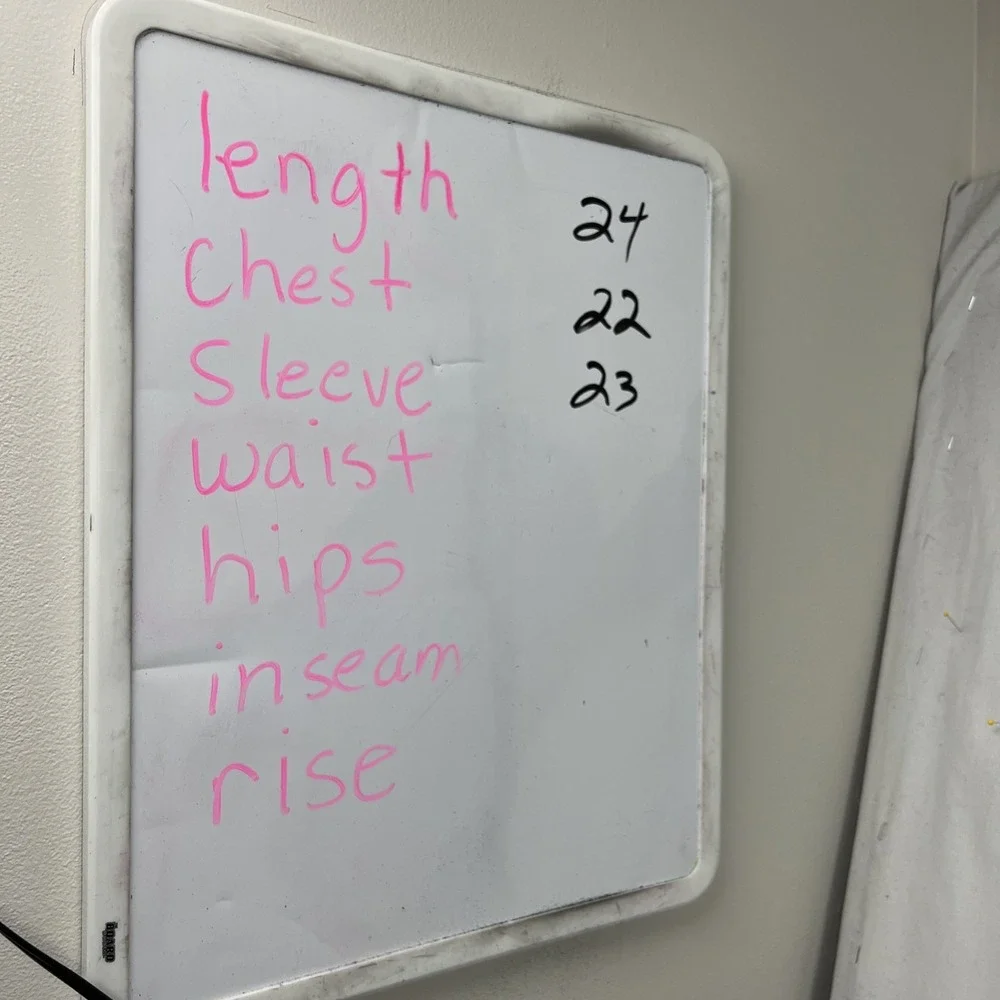 length 24
Chest 22
Sleeve 23
waist
hips
inseam
rise